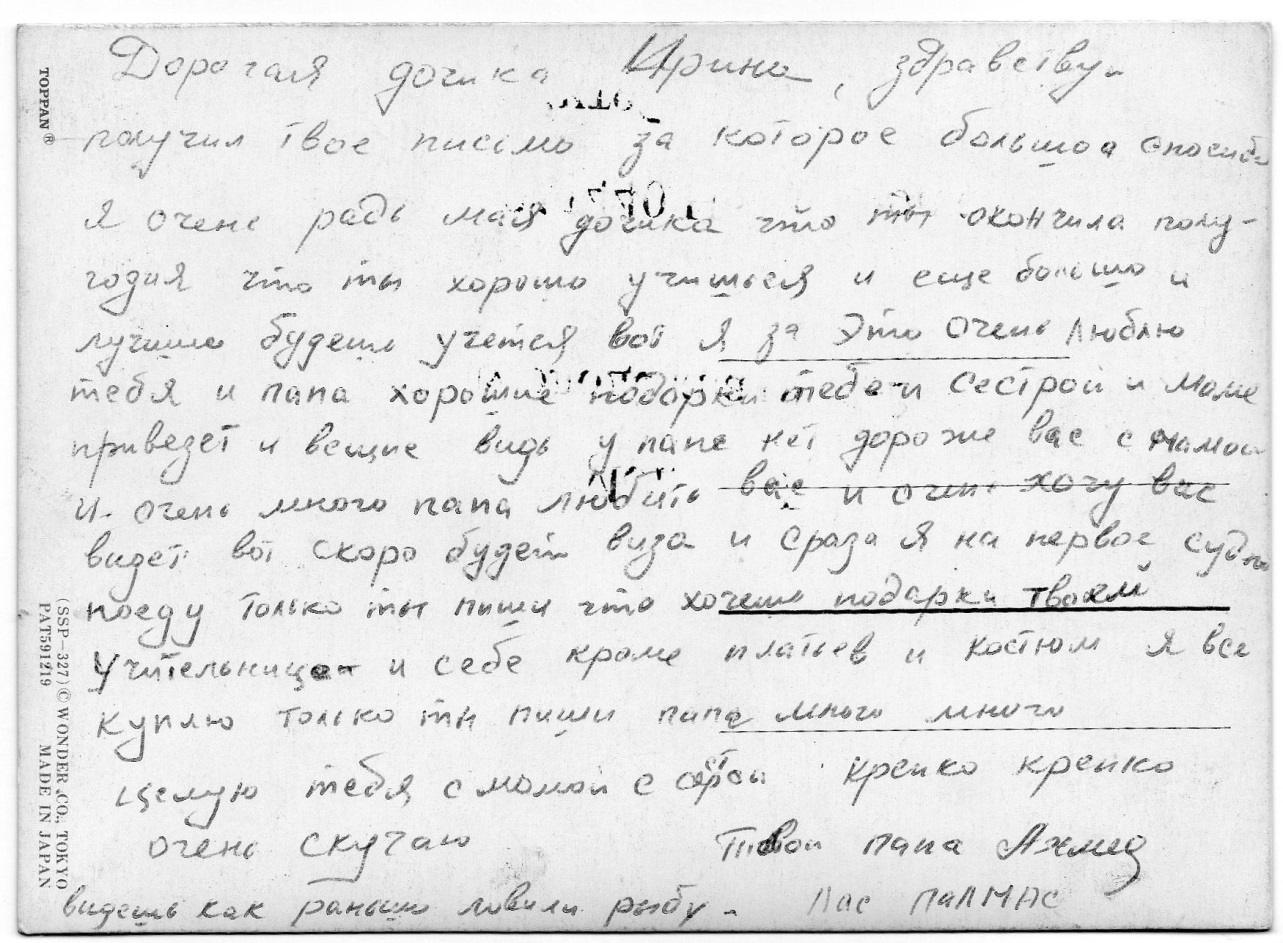 Дорогая дочика Ирина, здравствуй
получил твое письмо за которое большоа спосиба
я очень радь мая дочика что ты окончила полу-
годия что ты хорошо учишься и еще большо и
лучшие будешь учется вот я за это очень люблю
тебя и папа хорошие подарки тебе и сестрой и маме
привезет и вещие видь у папе нет дороже вас с мамой
и очень много папа любить вас и очень хочу вас
видет вот скоро будет виза и сраза я на первое судно
поеду только ты пиши что хочешь подарки твоей
учительнице и себе кроме платьев и костюм я все
куплю только ты пиши папа много много
целую тебя с мамой с сестрой крепко крепко
очень скучаю Твой папа Ахмед
видешь как раньшо ловили рыбу. Лас ПаЛМАС
TOPPAN ®
(SSP-327) © WONDER CO., TOKYO
PAT591219 MADE IN JAPAN